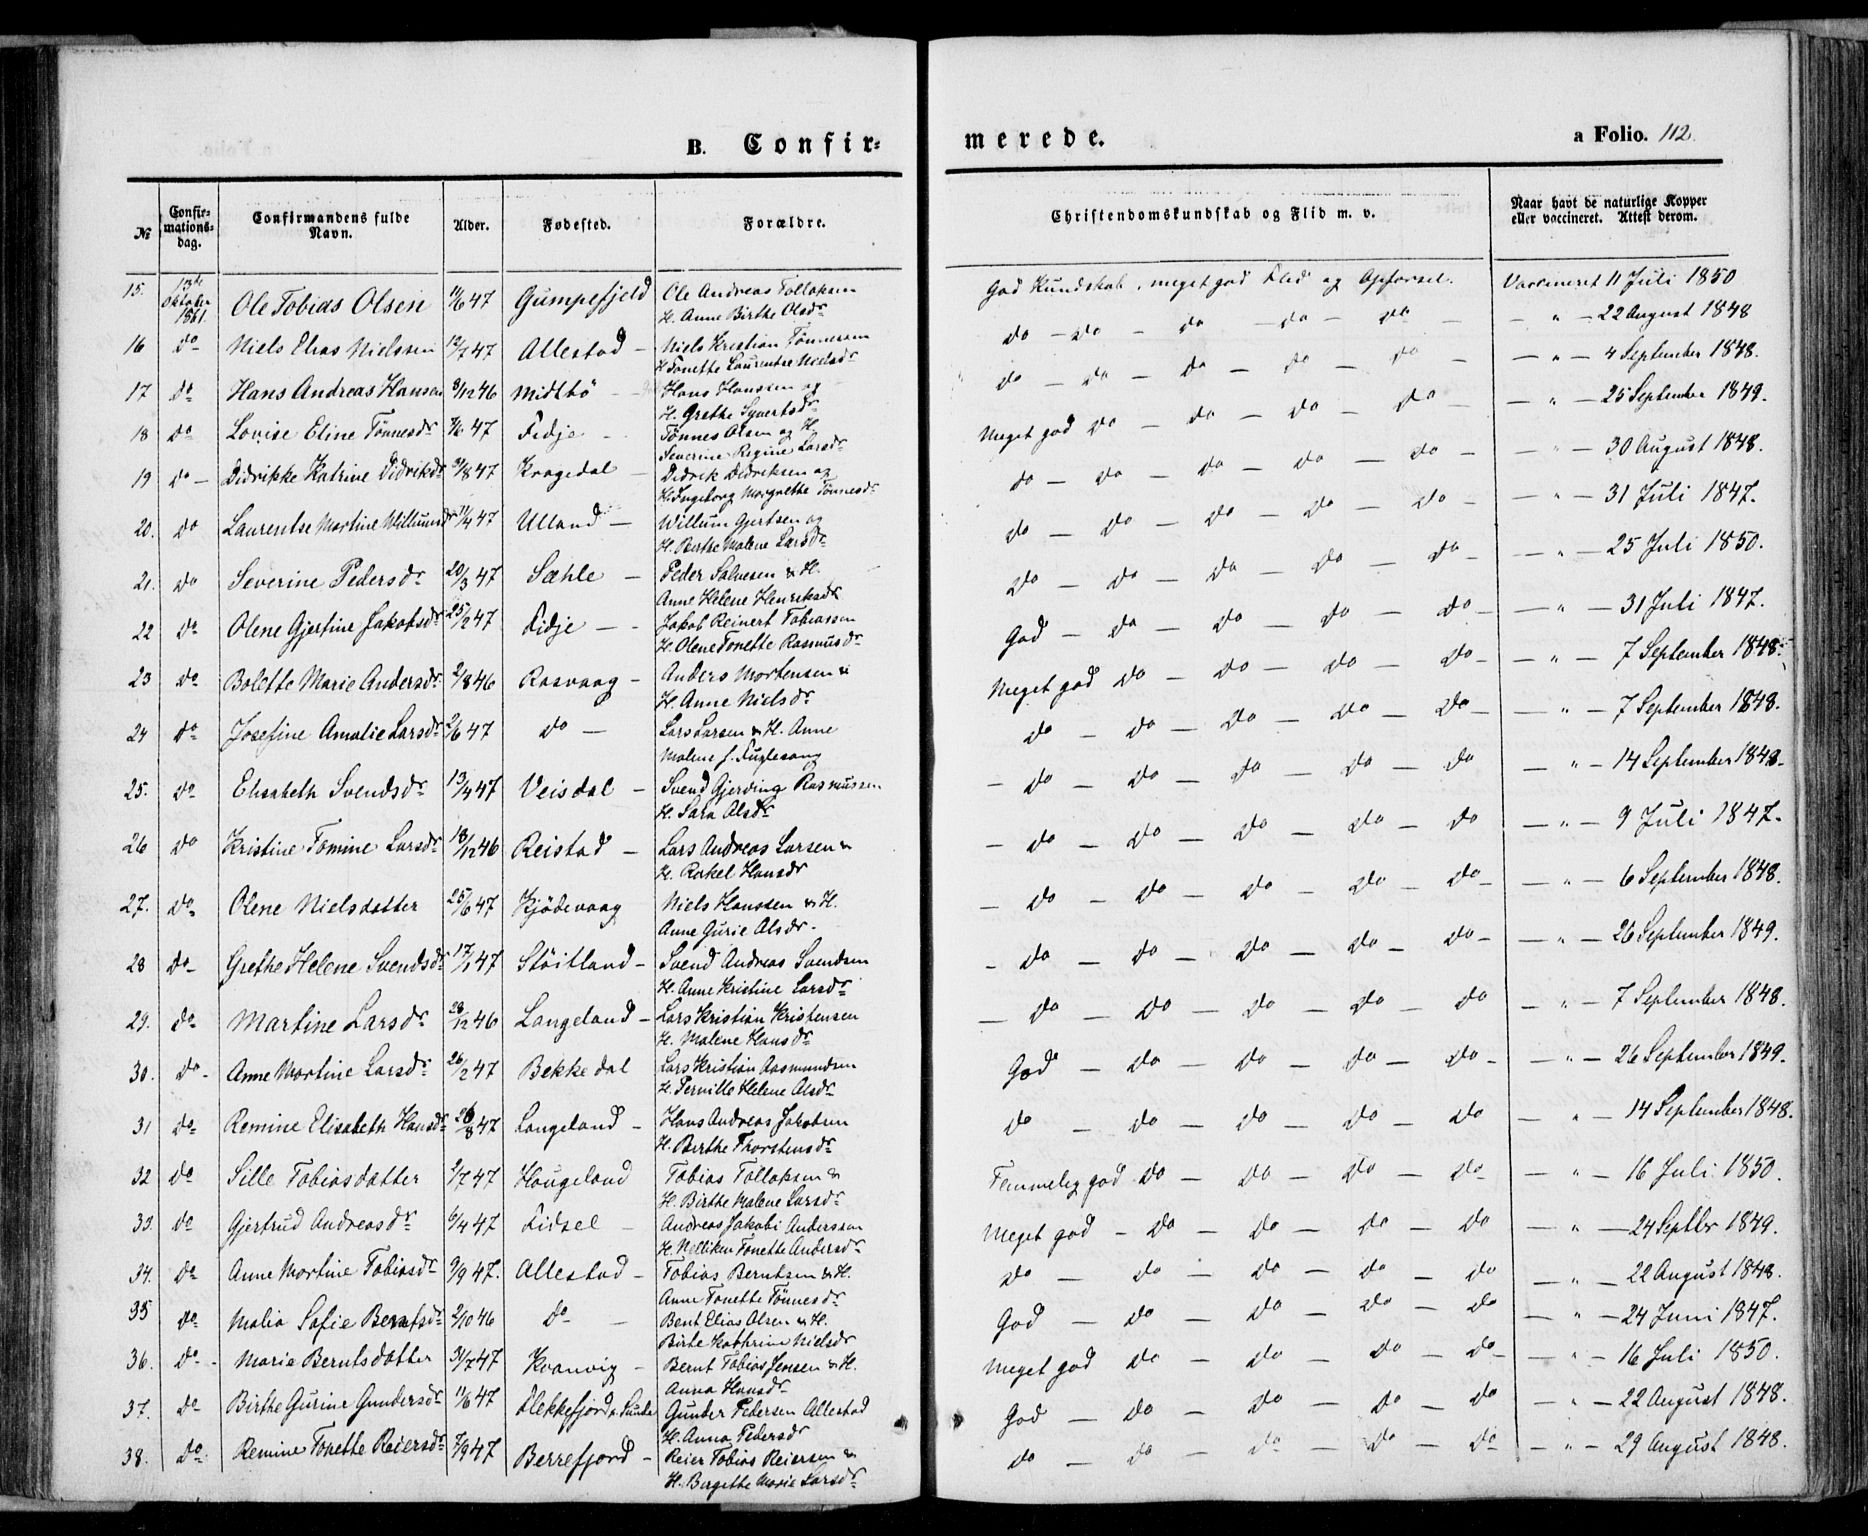 B. Confir-
merede.
a Folio. 112.
№ Confirmations-dag. Confirmandens fulde Navn. Alder. Fødested. Forældre. Christendomskundskab og Flid m. v. Naar havt de naturlige Kopper eller vaccineret. Attest derom.
15. 13de Oktober 1861. Ole Tobias Olsen 11/6 47 Gumpefjeld Ole Andreas Tollaksen God Kundskab, meget god Flid og Opførsel. Vaccineret 11 Juli 1850
H. Anne Birthe Olsdr
16 do Niels Elias Nielssen 12/7 47 Allestad - Niels Kristian Tønnessen do - do - do - do - do - - " - 22 August 1848
H. Tonette Laurentse Nielsdr
17 do Hans Andreas Hansen 8/12 46 Midtbö - Hans Hanssen og do - do - do - do - do - - " - 4 September 1848.
H. Grethe Syvertsdr
18 do Lovise Eline Tønnesdr 7/6 47 Fidje - Tønnes Olsen og H. Meget god do - do - do - do - - " - 25 September 1849.
Severine Regine Larsdr
19 do - Didrikke Katrine Didriksdr 9/8 47 Kragedal - Didrik Didriksen og do - do - do - do - do - - " - 30 August 1848.
H. Ingeborg Margrethe Tønnesdr
20. do Laurentse Martine Willumsdr 11/4 47 Ulland - Willum Gjertsen og do - do - do - do - do - - " - 31 Juli 1847.
H. Berthe Malene Larsdr
21. do Severine Pedersdr 20/3 47 Sæhle - Peder Salvesen & H. do - do - do - do - do - - " - 25 Juli 1850.
Anne Helene Henriksdr
22 do Olene Gjertine Jakobsdr 25/2 47 Fidje - - Jakob Reinert Tobiassen God - do - do - do - do - - " - 31 Juli 1847.
H. Olene Tonette Rasmusdr
23 do Bolette Marie Andersdr 2/8 46 Rasvaag - Anders Mortensen & Meget god do - do - do - do - - " - 7 September 1848.
H. Anne Nielsdr
24 do Josefine Amalie Larsdr 2/6 47 do - Lars Larsen & H. Anne do - do - do - do - do - - " - 7 September 1848.
Malene f. Fuglesang
25. do Elisabeth Svendsdr 13/4 47 Veisdal - Svend Gjerding Rasmussen - do - do - do - do - do - " - 14 September 1848.
H. Sara Olsdr
26 do Kristine Tomine Larsdr 18/12 46 Reistad - Lars Andreas Larsen & - do - do - do - do - do - " - 9 Juli 1847.
H. Rakel Hansdr
27. do Olene Nielsdatter 25/6 47 Kjödevaag Niels Hanssen & H. - do - do - do - do - do - - " - 6 September 1848.
Anne Gurie Olsdr.
28 do - Grethe Helene Svendsdr 17/1 47 Stöitland - Svend Andreas Svendsen - do - do - do - do - do - - " - 26 September 1849.
H. Anne Kristine Larsdr
29. do Martine Larsdr 28/12 46 Langeland - Lars Kristian Kristensen - do - do - do - do - do - " - 7 September 1848.
H. Malene Hansdr
30. do - Anne Martine Larsdr 26/2 47 Bekkedal Lars Kristian Aasmundsen God - do - do - do - do - - " - 26 September 1849.
H. Pernille Helene Olsdr
31 do Remine Elisabeth Hansdr 26/8 47 Langeland - Hans Andreas Jakobsen do - do - do - do - do - " - 14 September 1848.
H. Berthe Thorstensdr
32 do Sille Tobiasdatter 9/7 47 Haugeland Tobias Tollaksen & Temmelig god do - do - do - do - " - 16 Juli 1850.
H. Birthe Malene Larsdr
33. do Gjertrud Andreasdr 6/4 47 Fidsel - Andreas Jakobi Anderssen Meget god - do - do - do - do - " - 24 Septbr 1849.
H. Nelliken Tonette Andersdr
34. do Anne Martine Tobiasdr 9/9 47. Allestad - Tobias Berntsen & H. do - do - do - do - do - " - 22 August 1848.
Anne Tonette Tønnesdr
35 do Malia Sofie Berntsdr 2/10 46 do - Bent Elias Olsen & H. God - do - do - do - do " - 24 Juni 1847.
Birte Kathrine Nielsdr
36. do - Marie Berntsdatter 31/7 47 Kvanvig - Bernt Tobias Jensen & H. Meget god do - do - do - do - - " - 16 Juli 1850.
Anna Hansdr
37. do Birthe Gurine Gundersdr 11/6 47 Flekkefjord Gunder Pedersen Allestad God - do - do - do - do - " - 22 August 1848.
H. Anna Pedersdr
38. do Remine Tonette Reiersdr 7/9 47 Berrefjord - Reier Tobias Reiersen & do - do - do - do - do - " - 29 August 1848.
H. Bergitte Marie Larsdr